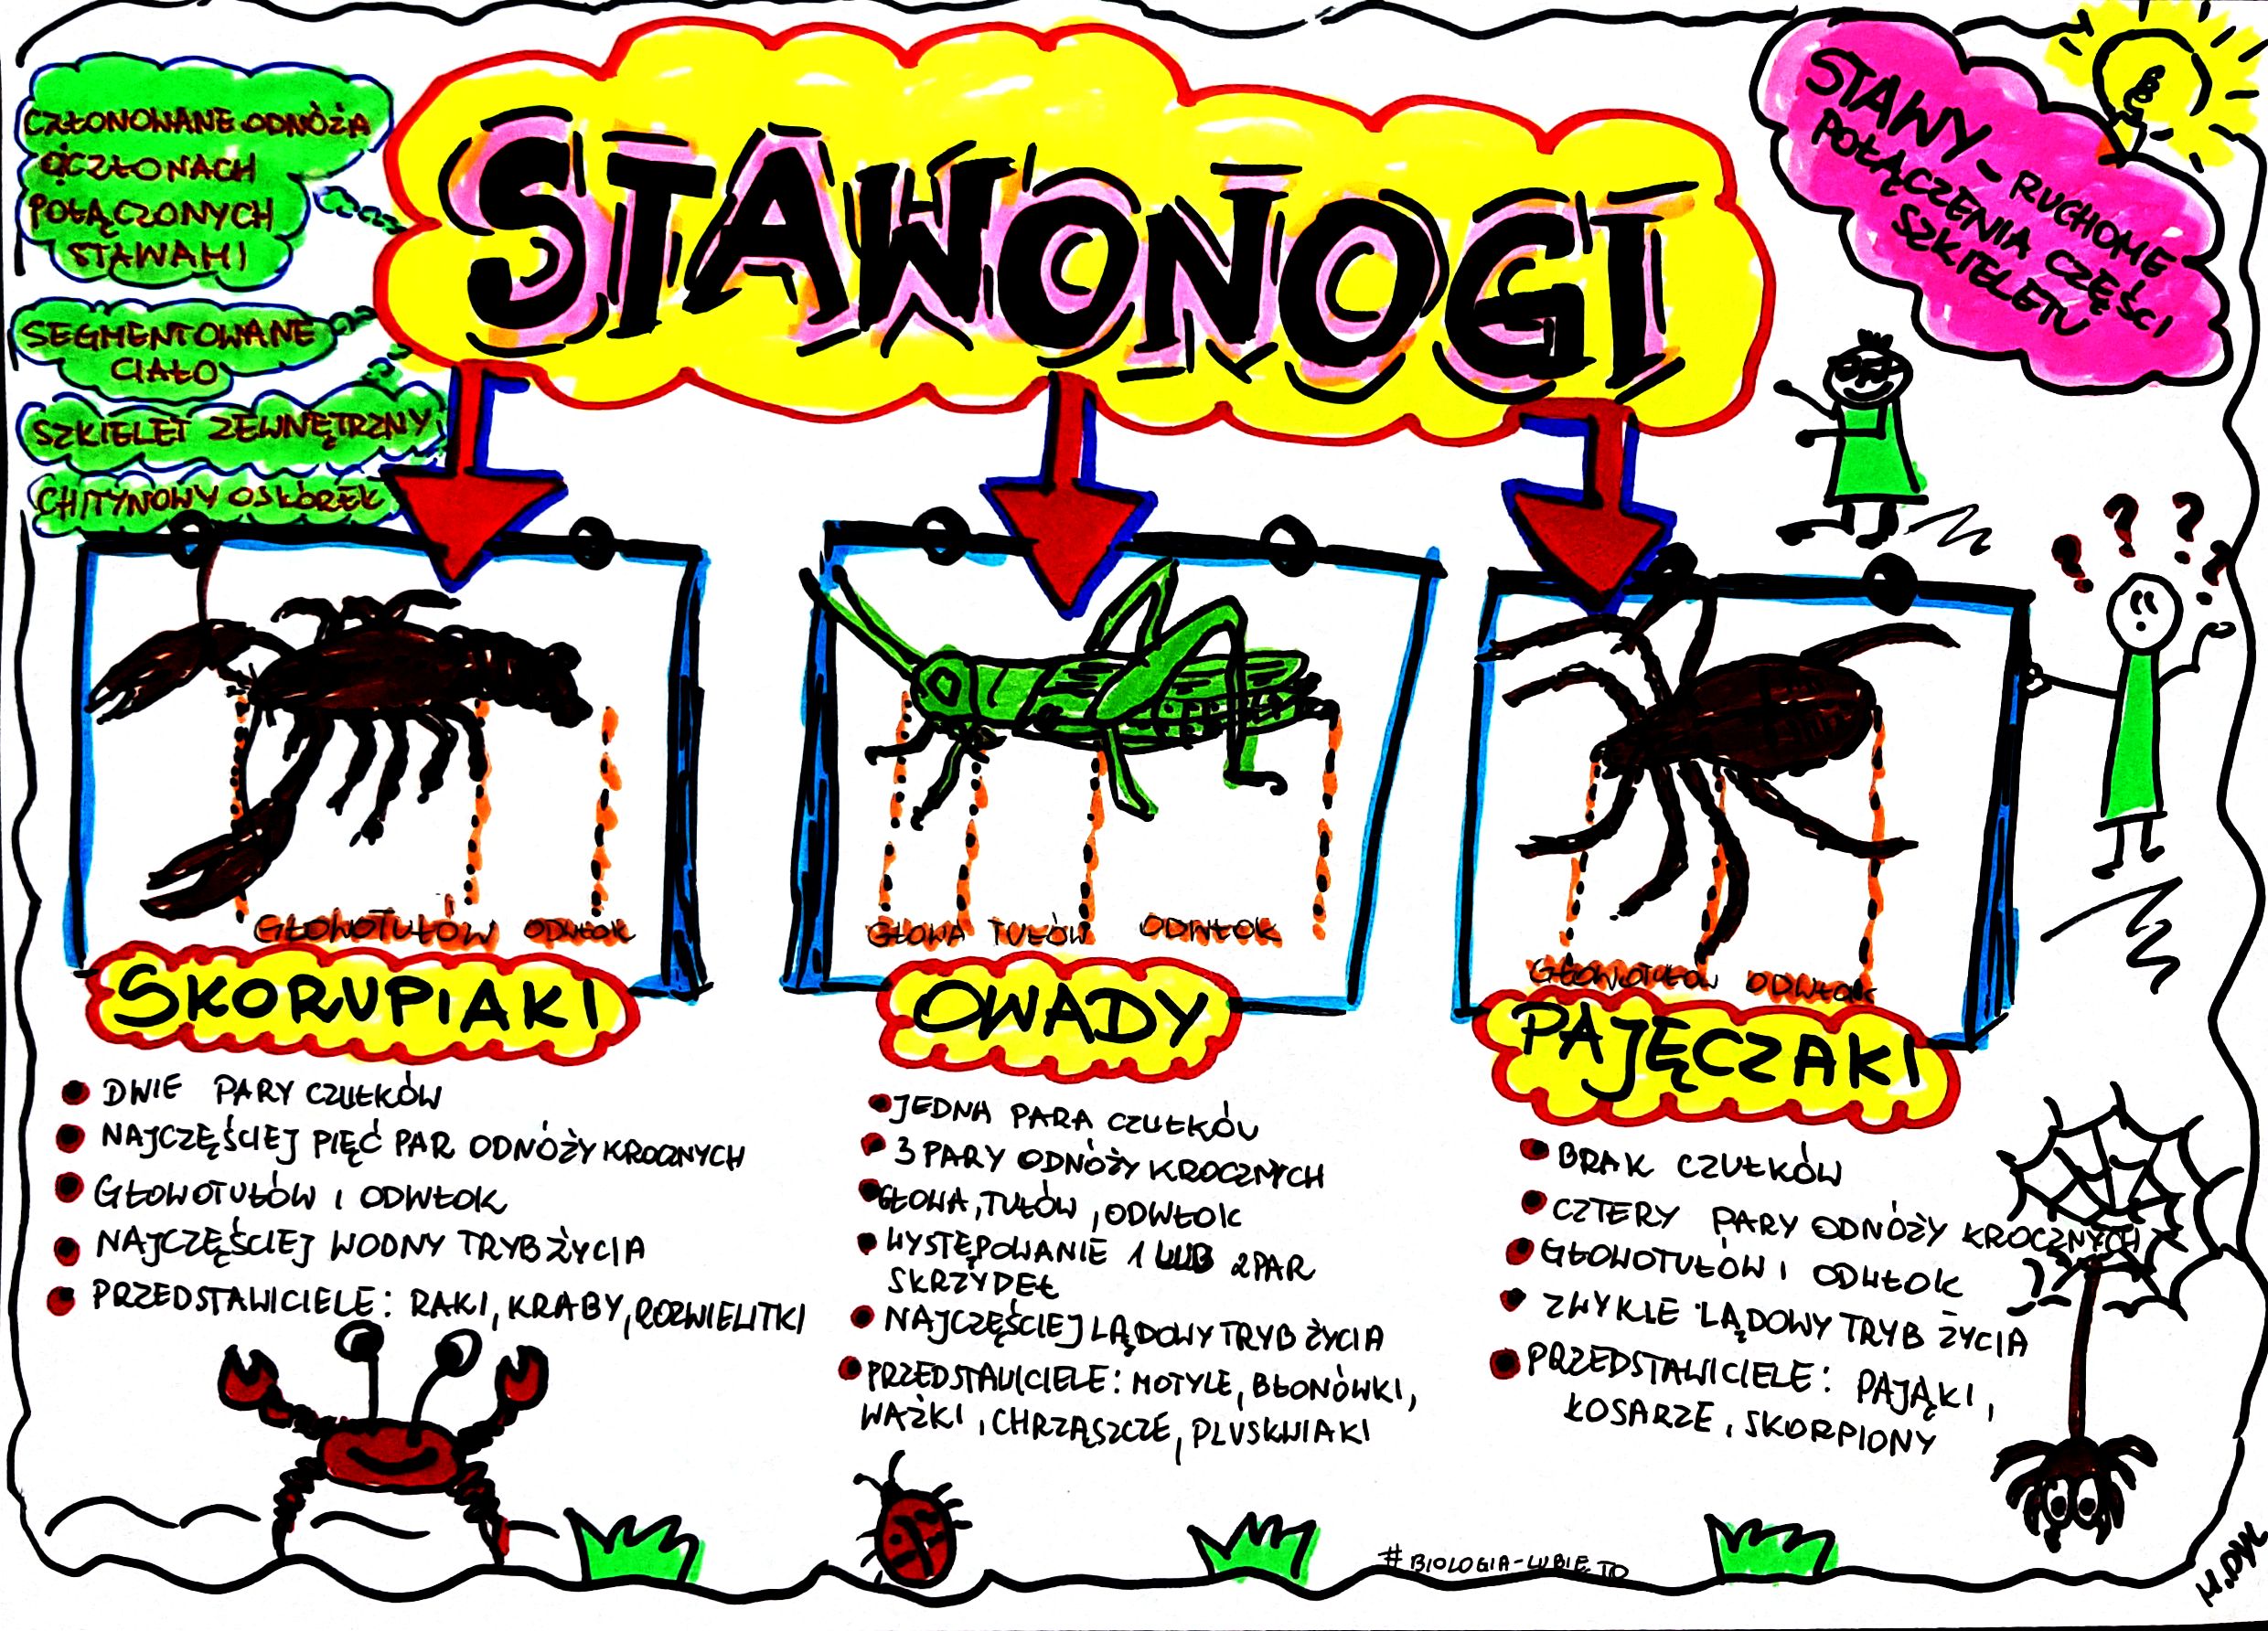 STAWONOGI
CZŁONOWANE ODNÓŻA
O CZŁONACH
POŁĄCZONYCH
STAWAMI
SEGMENTOWANE
CIAŁO
SZKIELET ZEWNĘTRZNY
CHITYNOWY OSKÓREK
STAWY - RUCHOME
POŁĄCZENIA CZĘŚCI
SZKIELETU
? ? ? ?
GŁOWOTUŁÓW ODWŁOK
SKORUPIAKI
DWIE PARY CZUŁKÓW
NAJCZĘŚCIEJ PIĘĆ PAR ODNÓŻY KROCZNYCH
GŁOWOTUŁÓW I ODWŁOK
NAJCZĘŚCIEJ WODNY TRYB ŻYCIA
PRZEDSTAWICIELE: RAKI, KRABY, ROZWIELITKI
GŁOWA TUŁÓW ODWŁOK
OWADY
JEDNA PARA CZUŁKÓW
3 PARY ODNÓŻY KROCZNYCH
GŁOWA, TUŁÓW, ODWŁOK
WYSTĘPOWANIE 1 LUB 2 PAR
SKRZYDEŁ
NAJCZĘŚCIEJ LĄDOWY TRYB ŻYCIA
PRZEDSTAWICIELE: MOTYLE, BŁONÓWKI,
WAŻKI, CHRZĄSZCZE, PLUSKWIAKI
GŁOWOTUŁÓW ODWŁOK
PAJĘCZAKI
BRAK CZUŁKÓW
CZTERY PARY ODNÓŻY KROCZNYCH
GŁOWOTUŁÓW I ODWŁOK
ZWYKLE LĄDOWY TRYB ŻYCIA
PRZEDSTAWICIELE: PAJĄKI,
KOSARZE, SKORPIONY
#BIOLOGIA-LUBIĘ TO
M. DYL